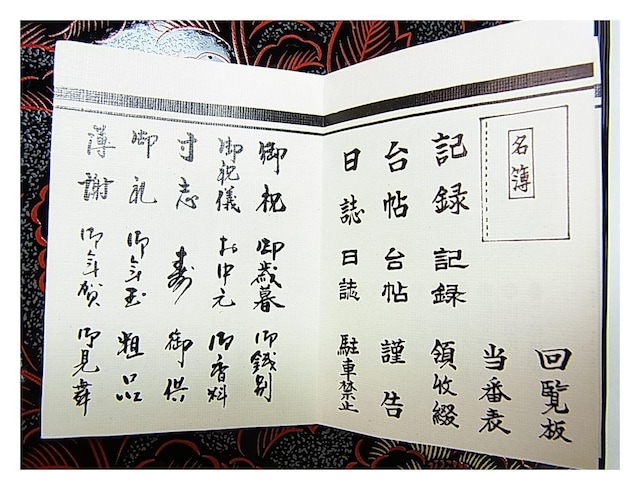 名簿
回覧板
当番表
記録 記録 領収綴
台帖 台帖 謹告
日誌 日誌 駐車禁止
御祝 御歳暮 御餞別
御祝儀 お中元 御香料
寸志 寿 御供
御礼 御年玉 粗品
薄謝 御年賀 御見舞